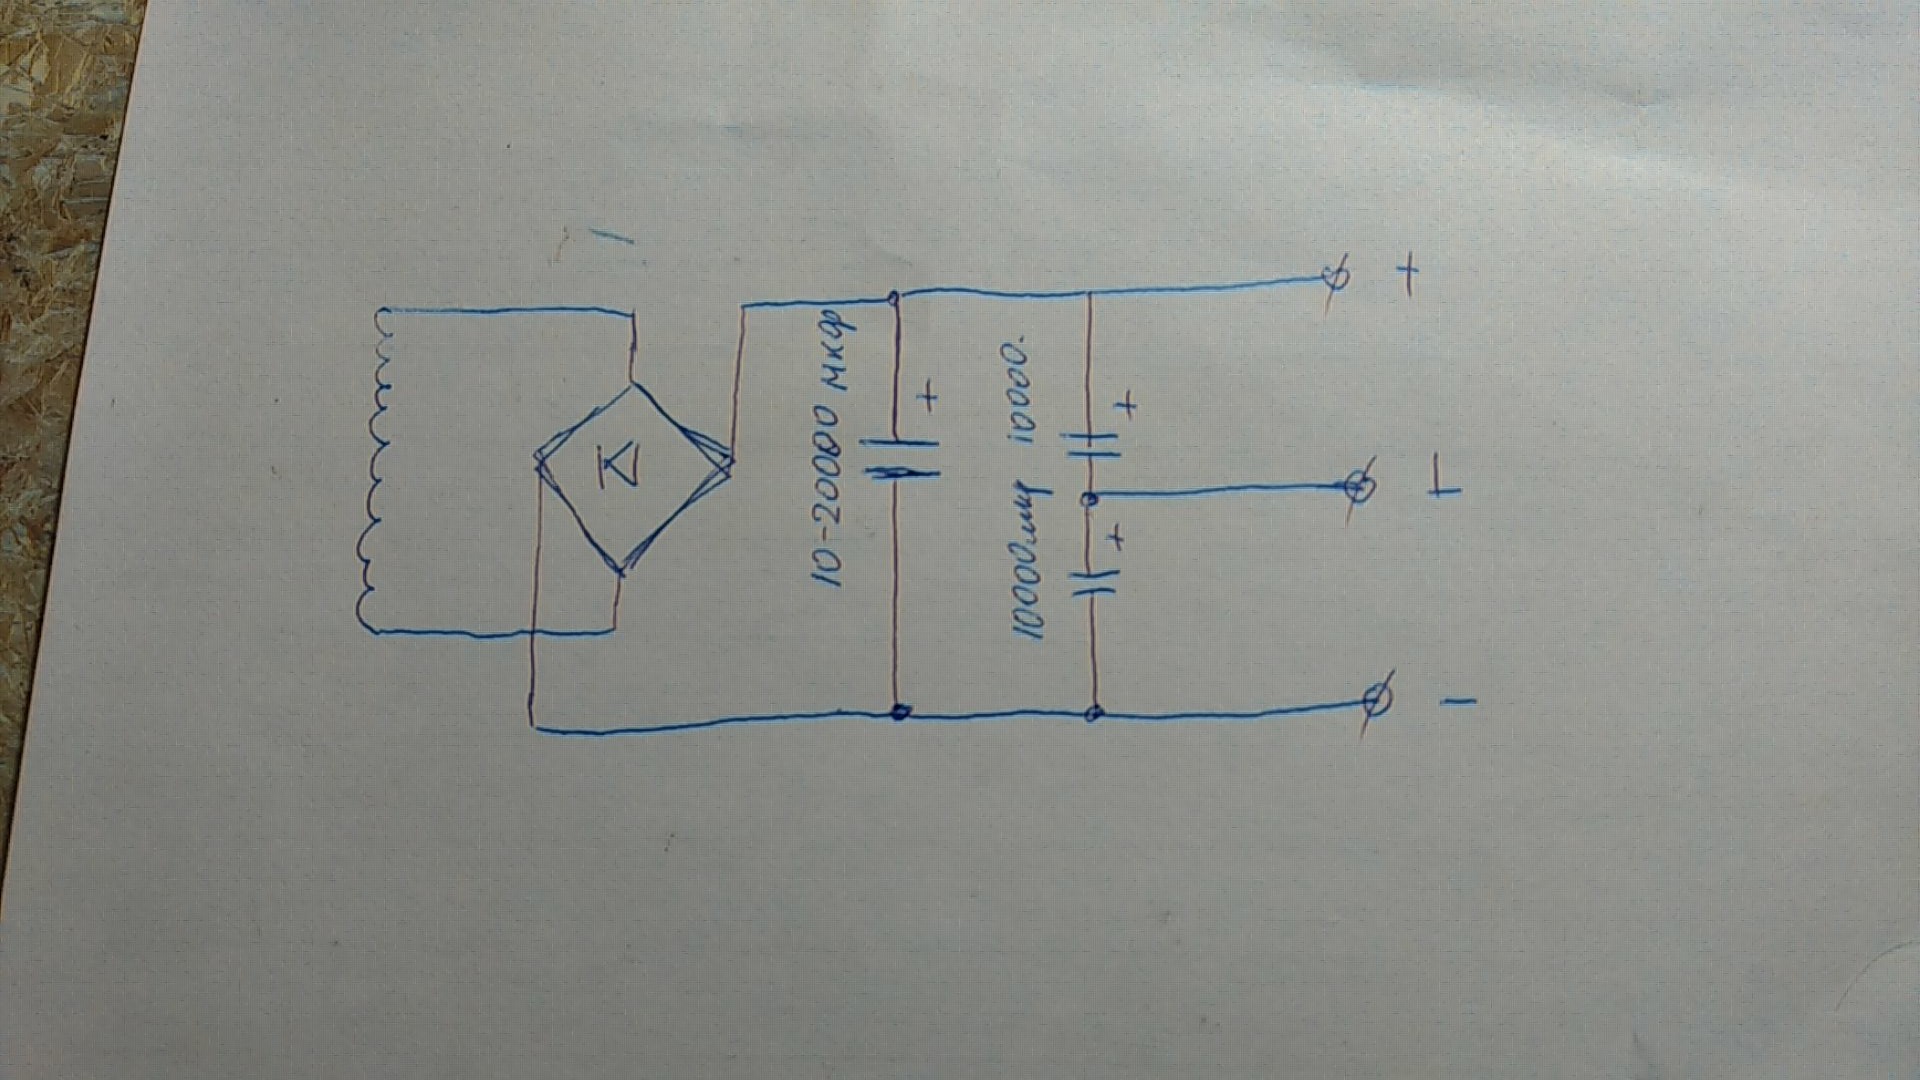 10-20000 мкф
10000мкф 10000.
+
+
+
+
-